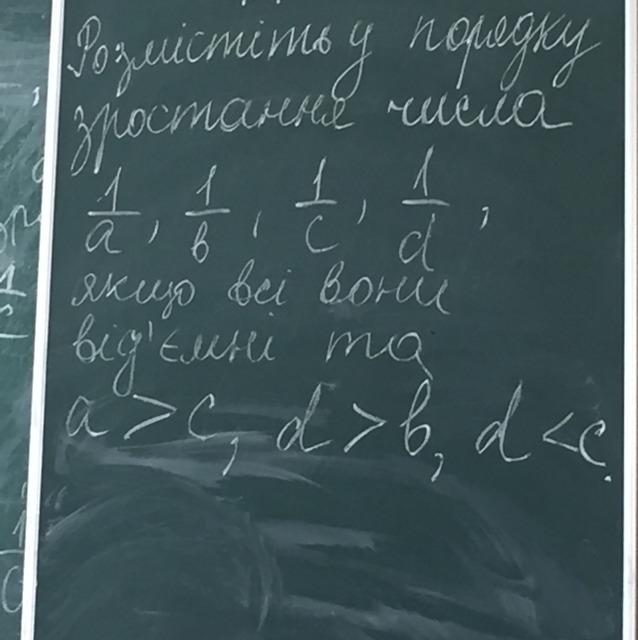 Розмістіть у порядку
зростання числа
1/a, 1/b, 1/c, 1/d,
якщо всі вони
від'ємні та
a > c, d > b, d < c.